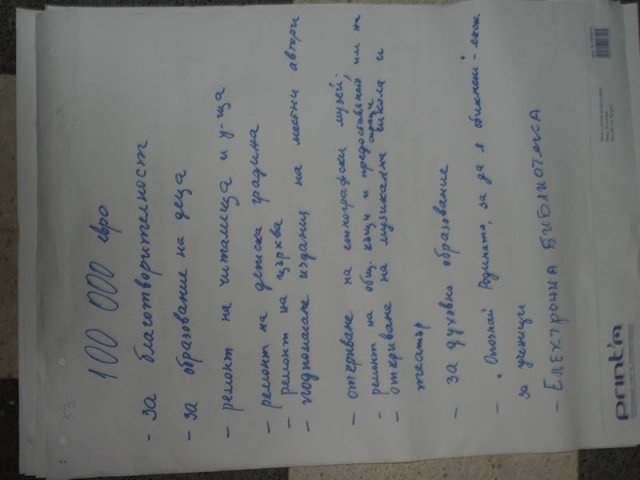 100 000 евро
- за благотворителност
- за образование на деца
- ремонт на читалища и у-ща
- ремонт на детска градина
- ремонт на църква
- подпомагане издания на местни автори
- откриване на етнографски музей
- ремонт на общ. къщи и предоставяне им на
- откриване на музикална школа и
театър
- за духовно образование
- "Опознай Родината, за да я обикнеш" - екск.
за ученици
- ЕЛЕКТРОННА БИБЛИОТЕКА
print'm